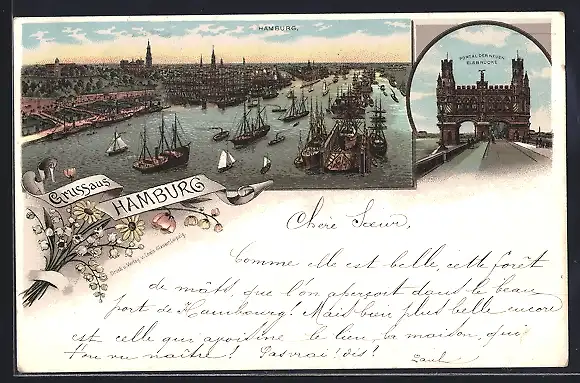 HAMBURG,
PORTAL DER NEUEN
ELBBRÜCKE
Gruss aus
HAMBURG
Druck u. Verlag v. Louis Glaser Leipzig.
Chère Soeur,
Comme elle est belle, cette forêt
de mâts, que l'on aperçoit dans le beau
port de Hambourg! Mais bien plus belle encore
est celle qui avoisine le lieu, la maison, qui
t'ou vu naître! Pas vrai! dis!